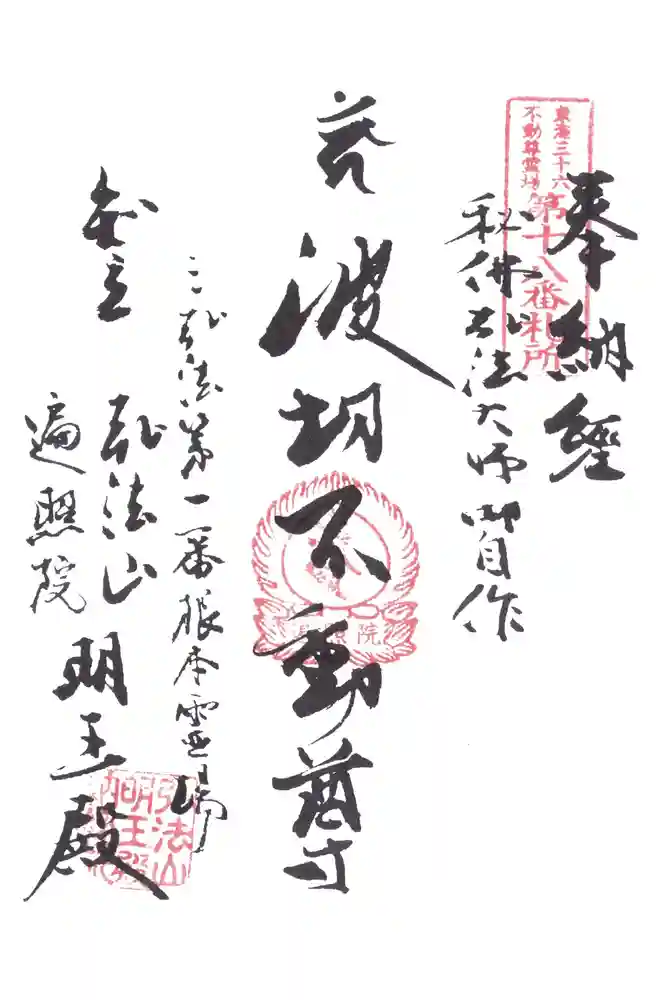 奉納經
東海三十六
不動尊霊場
第十八番札所
秘佛弘法大師御自作
波切不動尊
照院
三弘法第一番根本霊場
知立 弘法山 明王殿
遍照院
弘法山
明王殿